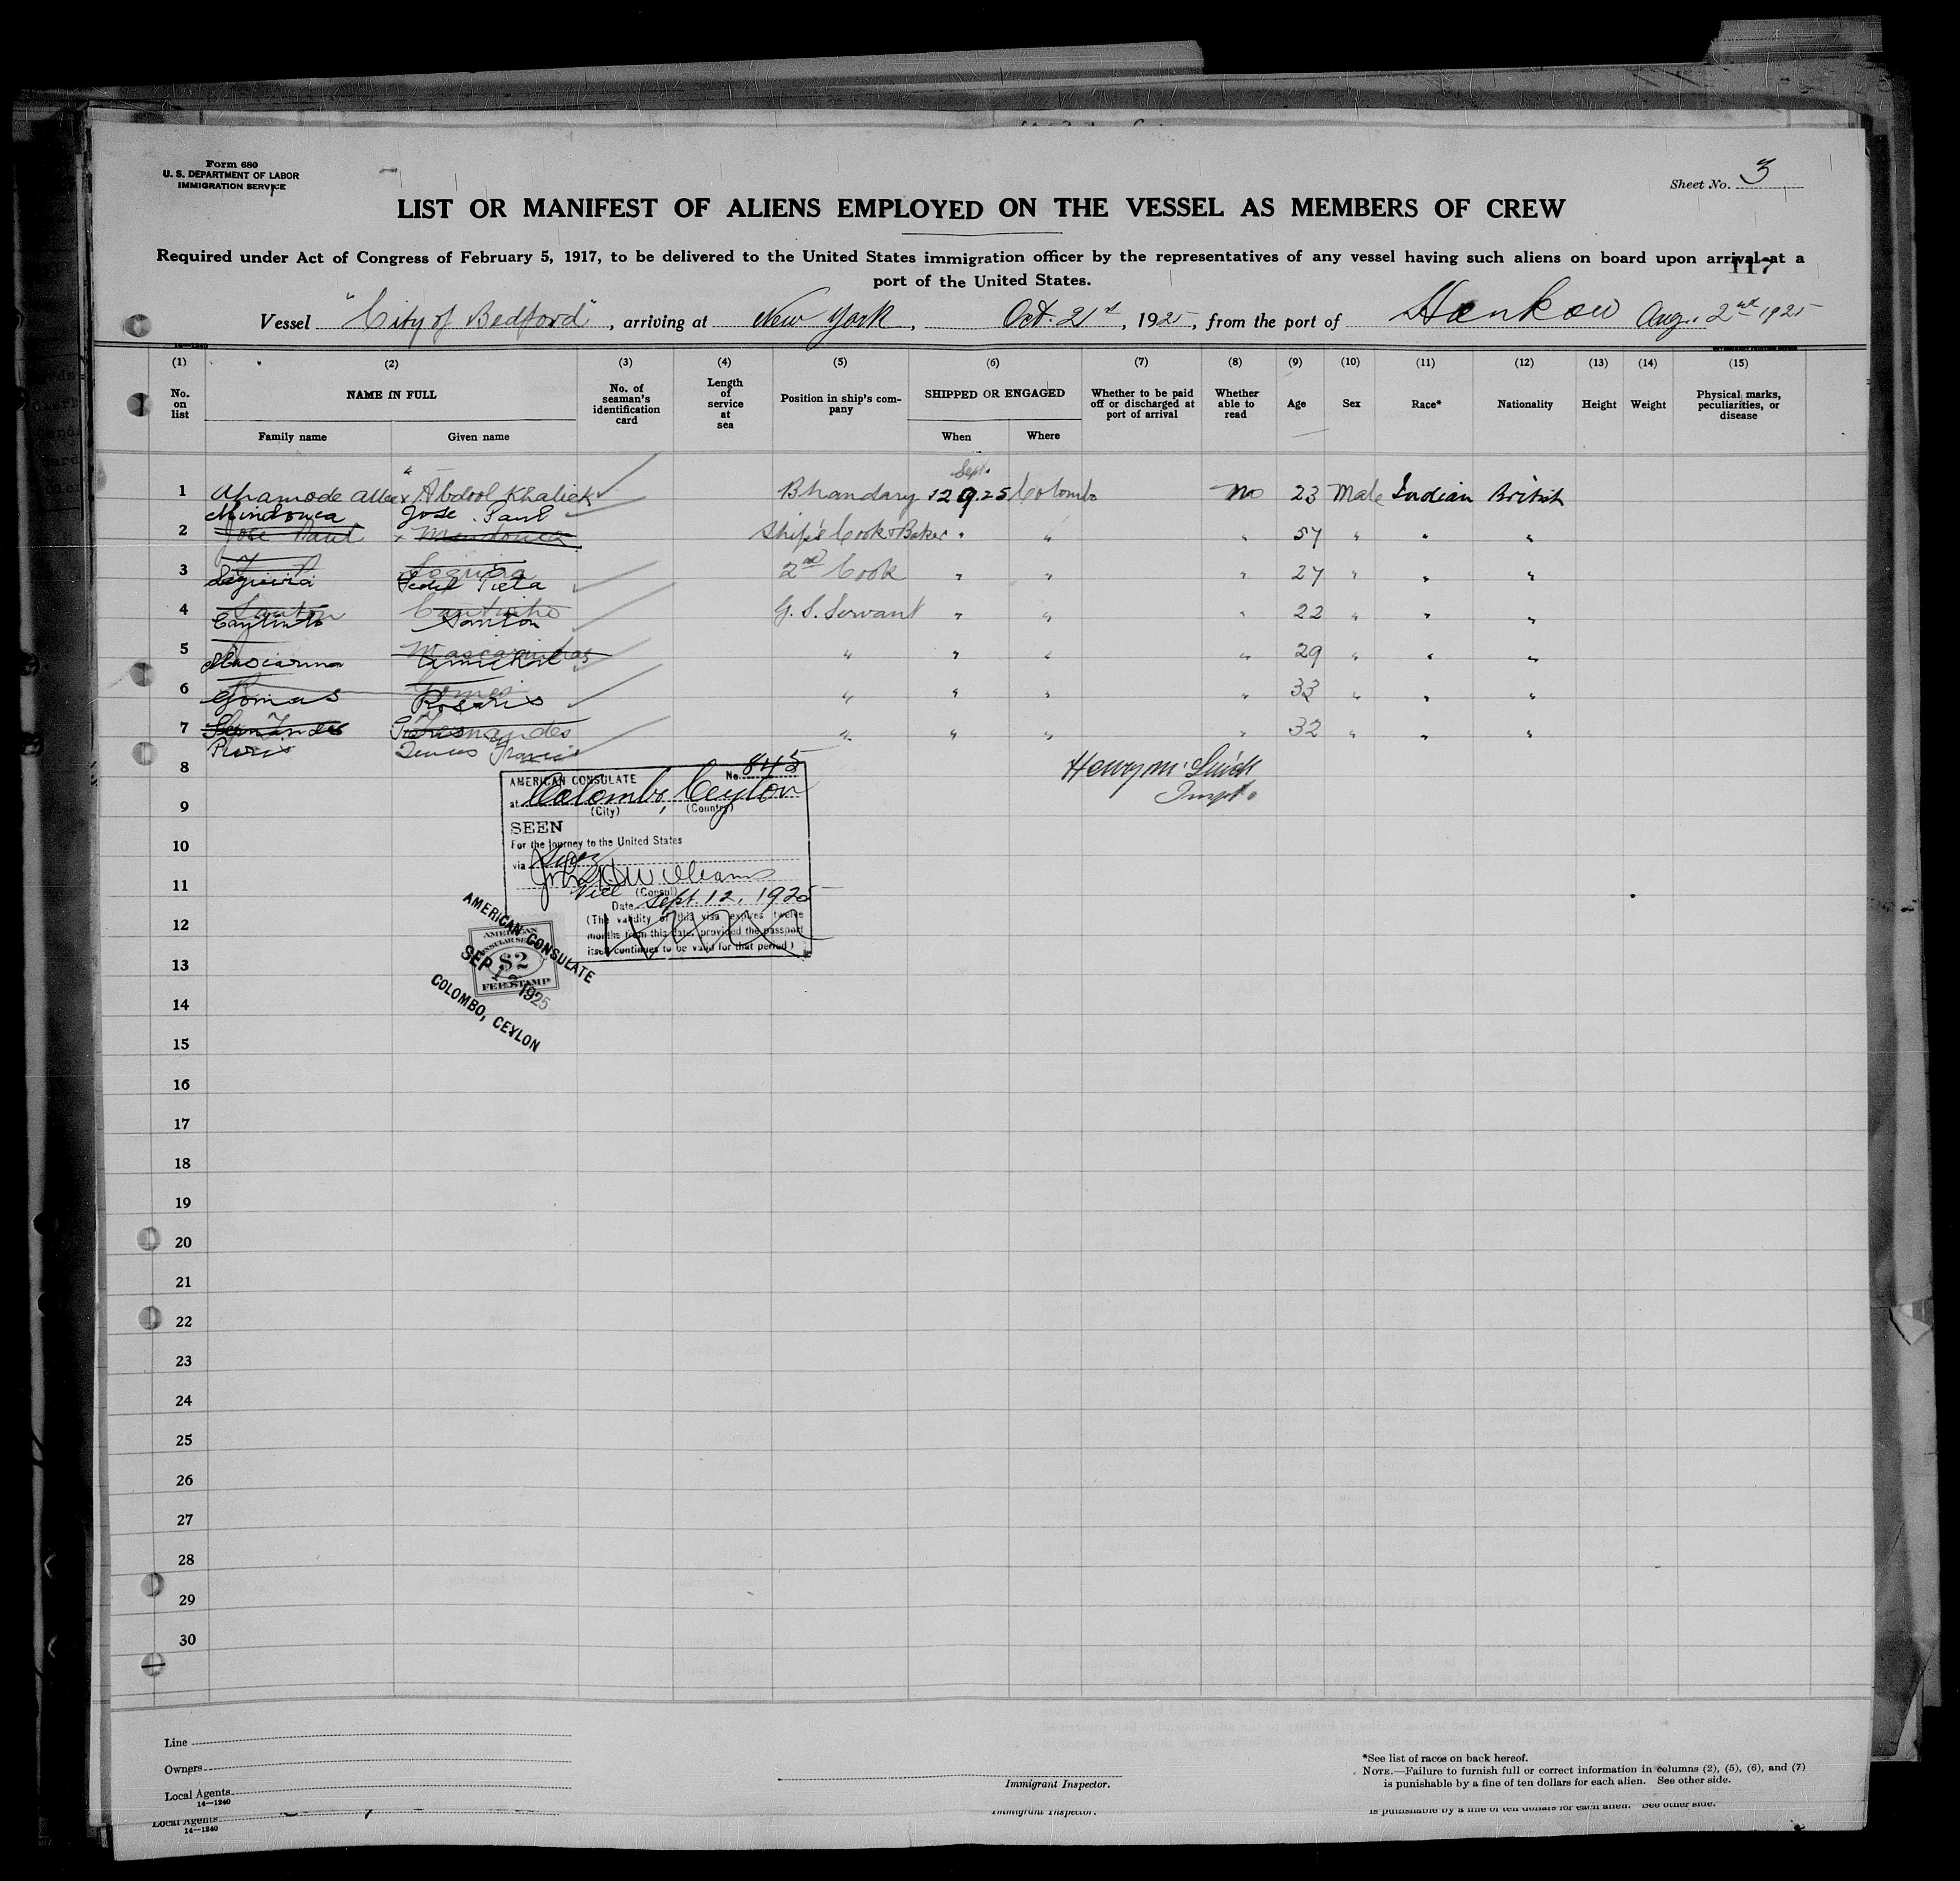 Form 680
U. S. DEPARTMENT OF LABOR
IMMIGRATION SERVICE
Sheet No. 3
LIST OR MANIFEST OF ALIENS EMPLOYED ON THE VESSEL AS MEMBERS OF CREW
Required under Act of Congress of February 5, 1917, to be delivered to the United States immigration officer by the representatives of any vessel having such aliens on board upon arrival at a
port of the United States.
117
Vessel "City of Bedford", arriving at New York, Oct. 21st, 1925, from the port of Hankow Aug. 2nd 1925
(1) (2) (3) (4) (5) (6) (7) (8) (9) (10) (11) (12) (13) (14) (15)
No. on list
NAME IN FULL
Family name
Given name
No. of seaman's identification card
Length of service at sea
Position in ship's company
SHIPPED OR ENGAGED
When
Where
Whether to be paid off or discharged at port of arrival
Whether able to read
Age
Sex
Race*
Nationality
Height
Weight
Physical marks, peculiarities, or disease
Sept.
1 Ahamode Abdool Khalick Bhandary 12 9.25 Colombo No 23 Male Indian British
Mindonca Jose Paul
2 Jose Paul x Mendonca Ship's Cook & Baker " " " 57 " " "
3 2nd Cook " " " 27 " " "
4 Santon Coutinho G. S. Servant " " " 22 " " "
5 Mascarinhas " " " " 29 " " "
6 Gomas Gomes " " " " 33 " " "
Rosaris
7 Fernandes Fernandes " " " " 32 " " "
8
Henry M. Quick
Inspt.
AMERICAN CONSULATE No. 845
at Colombo, Ceylon
(City) (Country)
SEEN
For the journey to the United States
via Suez
Williams
Vice (Consul)
Date Sept. 12, 1925
(The validity of this visa expires twelve
months from this date, provided the passport
itself continues to be valid for that period)
AMERICAN CONSULATE
SEP 12 1925
COLOMBO, CEYLON
AMERICAN
CONSULAR SERVICE
$2
FEE STAMP
9
10
11
12
13
14
15
16
17
18
19
20
21
22
23
24
25
26
27
28
29
30
Line
Owners
Local Agents
14—1240
Immigrant Inspector.
*See list of races on back hereof.
NOTE.—Failure to furnish full or correct information in columns (2), (5), (6), and (7)
is punishable by a fine of ten dollars for each alien. See other side.
Local Agents
14—1240
Immigrant Inspector.
is punishable by a fine of ten dollars for each alien. See other side.